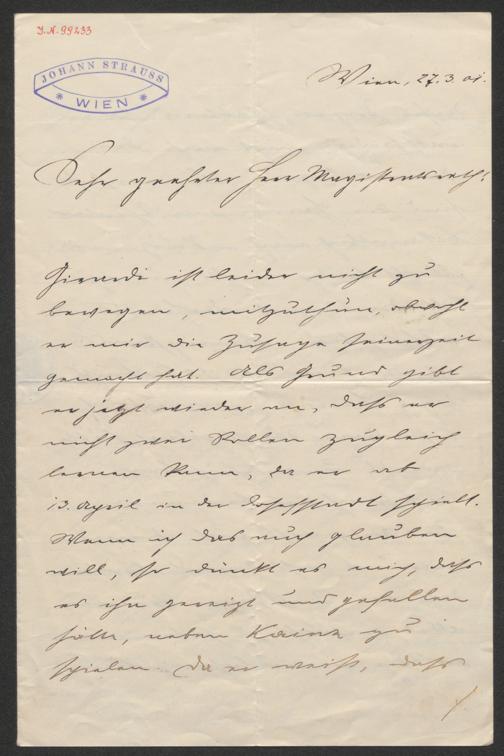 J.N. 99233
JOHANN STRAUSS
* WIEN *
Wien, 27.3.01.
Sehr geehrter Herr Magistratsrath!
Girardi ist leider nicht zu
bewegen, mitzuthun, obwohl
er mir die Zusage seinerzeit
gemacht hat. Als Grund gibt
er jetzt wieder an, dass er
nicht zwei Rollen zugleich
lernen kann, da er ab
13. April in der Josefstadt spielt.
Wenn ich das auch glauben
will, so dünkt es mich, dass
es ihn gereizt und gefallen
hätte, neben Kainz zu
spielen. Da er weiß, dass